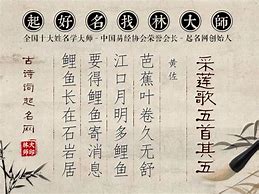 起好名找林大師
全国十大姓名学大师-中国易经协会荣誉会长-起名网创始人
采莲歌五首其五
黄佐
芭蕉叶卷久无舒
江口月明多鲤鱼
要得鲤鱼寄消息
鲤鱼长在石岩居
古诗词起名网
林大師